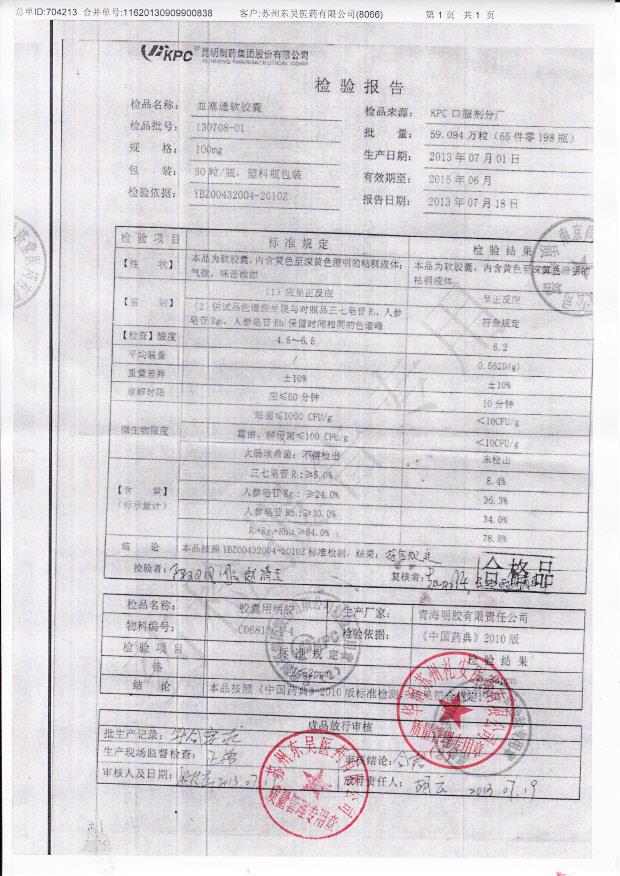 总单ID:704213 合并单号:11620130909900838 客户:苏州东吴医药有限公司(8066) 第 1 页 共 1 页
KPC 昆明制药集团股份有限公司
KUNMING PHARMACEUTICAL CORP.
检验报告
检品名称: 血塞通软胶囊 检品来源: KPC 口服剂分厂
检品批号: 130708-01 批 量: 59.094 万粒(65 件零 198 瓶)
规 格: 100mg 生产日期: 2013 年 07 月 01 日
包 装: 30 粒/瓶, 塑料瓶包装 有效期至: 2015 年 06 月
检验依据: YBZ00432004-2010Z 报告日期: 2013 年 07 月 18 日
检验项目 标准规定 检验结果
【性 状】 本品为软胶囊,内含黄色至深黄色澄明的粘稠液体;气微,味苦微甜 本品为软胶囊,内含黄色至深黄色澄明的粘稠液体
【鉴 别】 (1)应呈正反应 呈正反应
(2)供试品色谱应呈现与对照品三七皂苷 R₁,人参皂苷 Rg₁,人参皂苷 Rb₁保留时间相同的色谱峰 符合规定
【检查】酸度 4.5~6.5 6.2
平均装量 / 0.5620(g)
重量差异 ±10% ±10%
崩解时限 应≤60 分钟 10 分钟
微生物限度 细菌≤1000 CFU/g <10CFU/g
霉菌、酵母菌≤100 CFU/g <10CFU/g
大肠埃希菌:不得检出 未检出
【含 量】(标示量计) 三七皂苷 R₁:≥5.0% 8.4%
人参皂苷 Rg₁:≥24.0% 36.3%
人参皂苷 Rb₁:≥30.0% 34.0%
R₁+Rg₁+Rb₁:≥64.0% 78.8%
结 论 本品按照 YBZ00432004-2010Z 标准检测,结果:符合规定
检验者: 复核者: 合格品
检品名称: 胶囊用明胶 生产厂家: 青海明胶有限责任公司
物料编号: 检验依据: 《中国药典》2010 版
检验项目 标准规定 检验结果
铬
结 论 本品按照《中国药典》2010 版标准检测,结果符合规定
成品放行审核
批生产记录:
生产现场监督检查: 审核结论:合格
审核人及日期: 2013.07.19 放行责任人: 2013.07.19
华润苏州礼安医药有限公司
质量管理专用章
苏州东吴医药有限公司
质量管理专用章